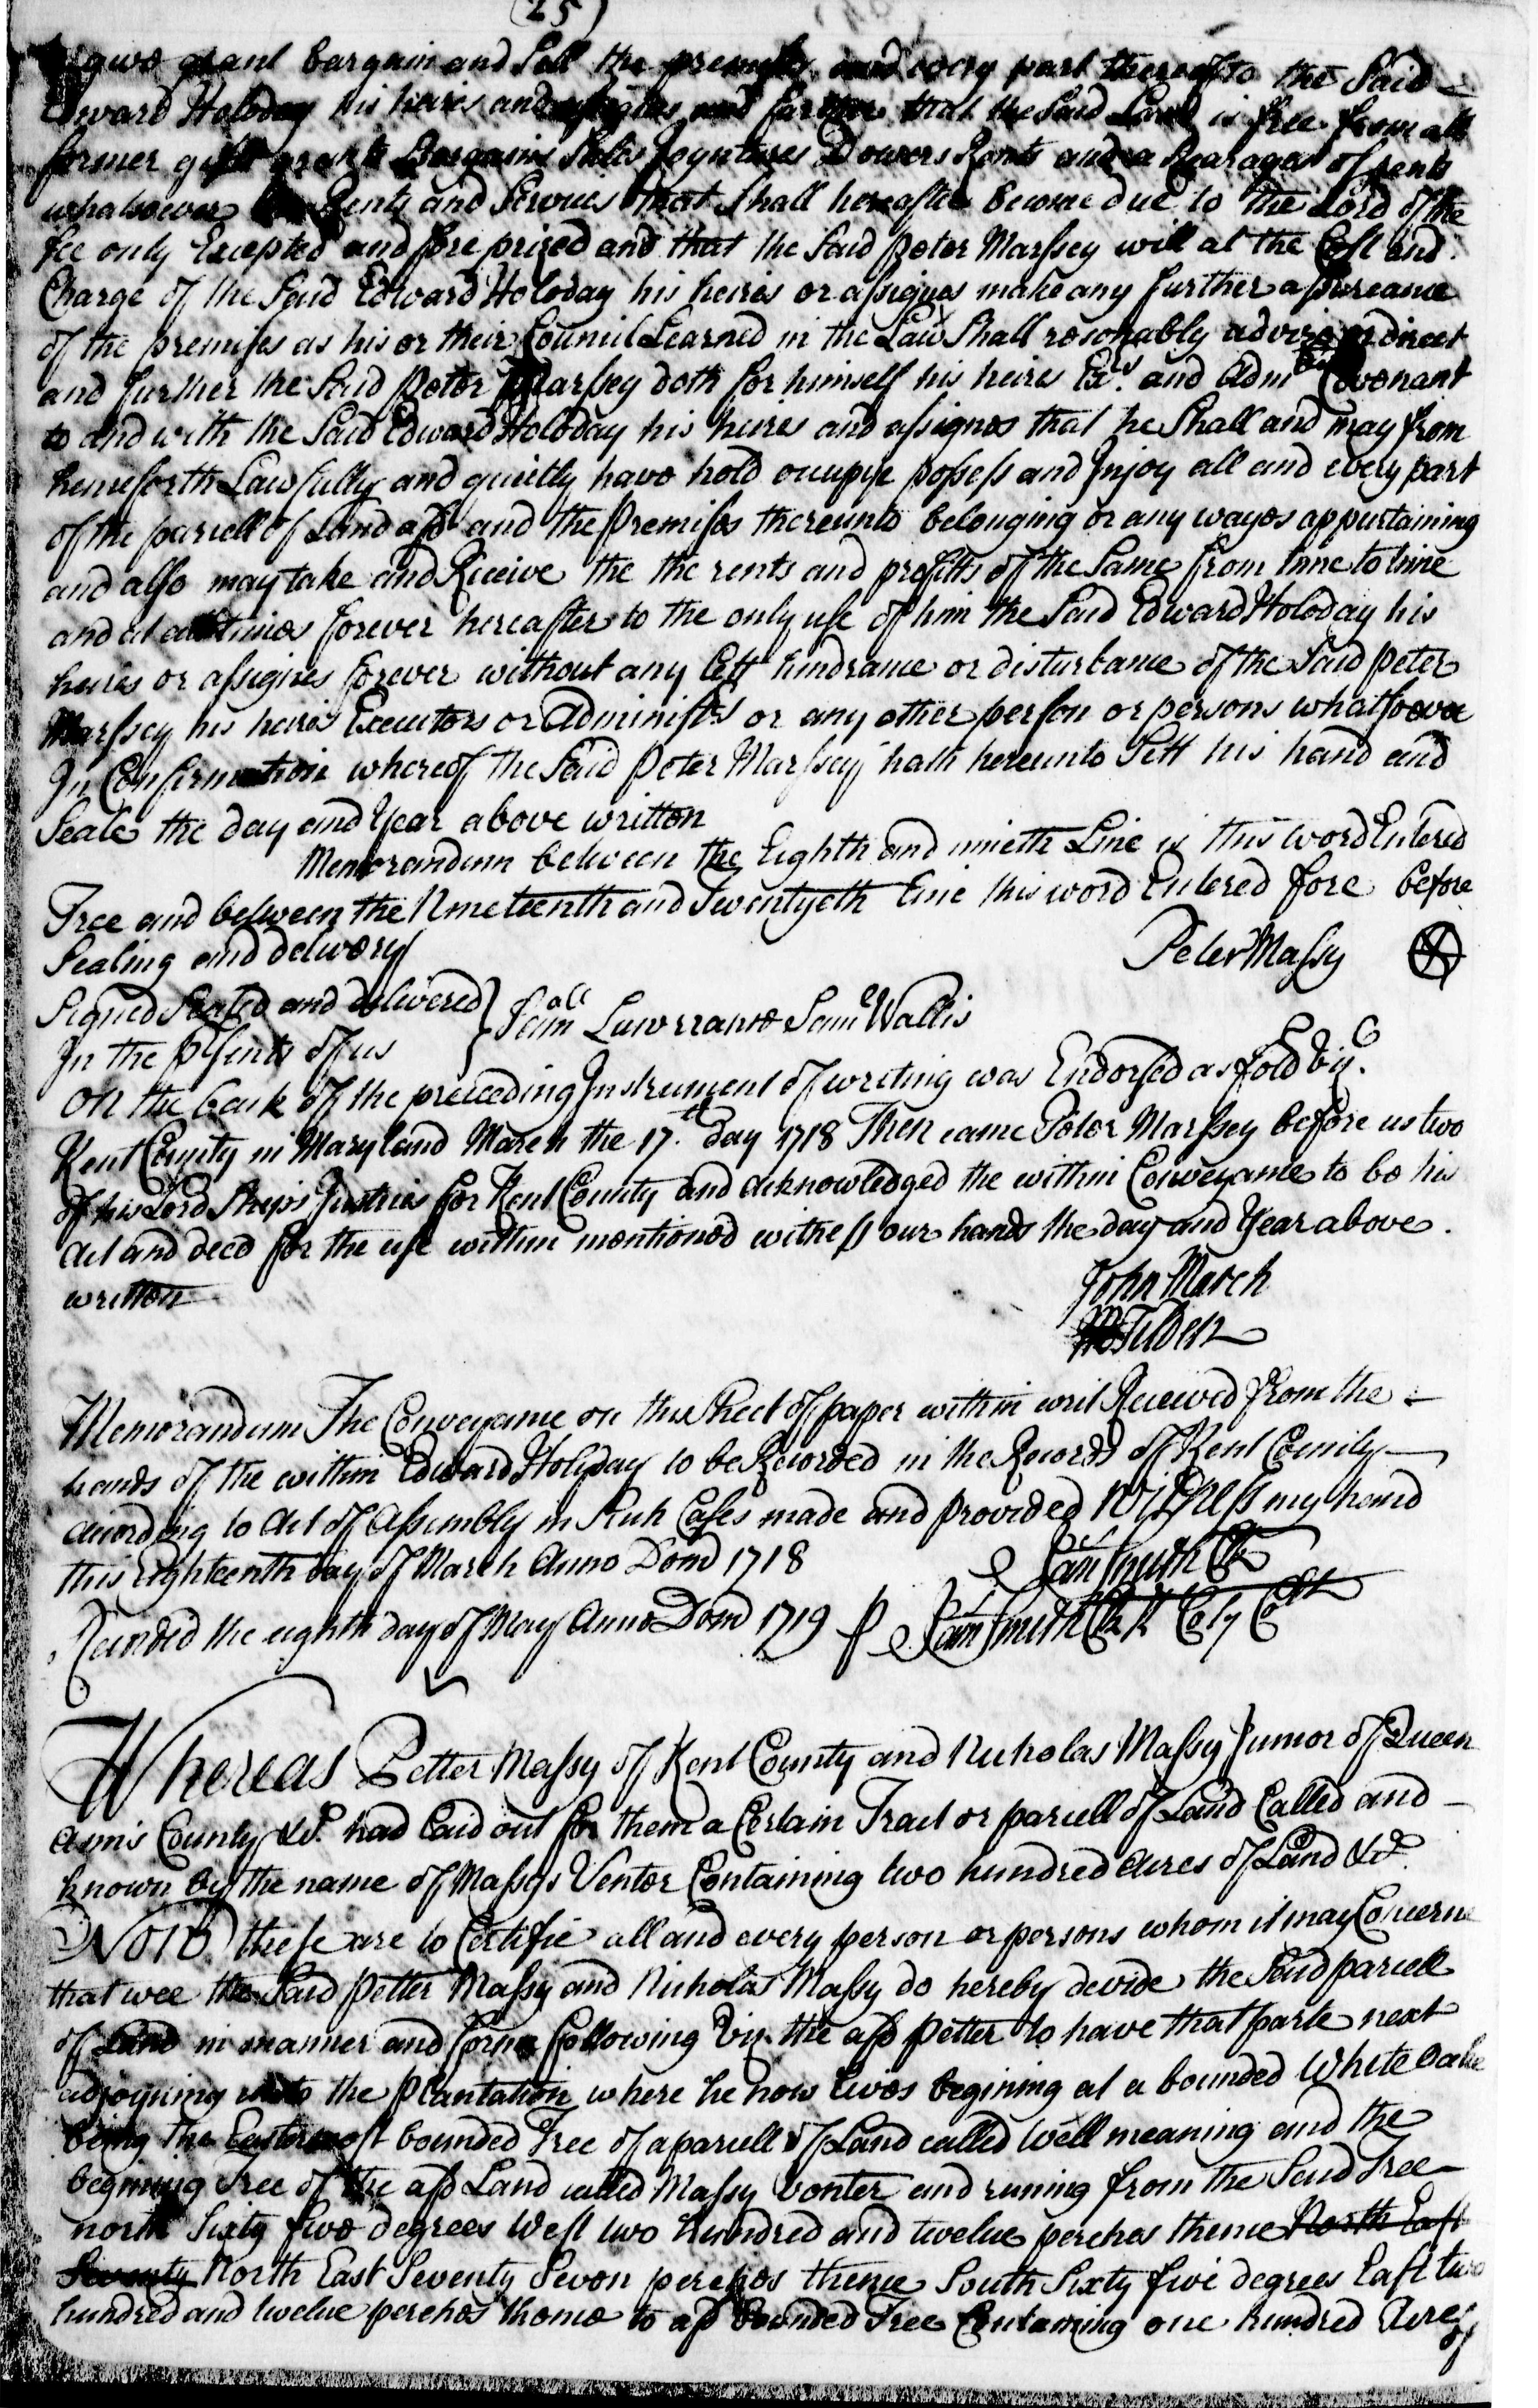 (25)
give grant bargain and Sell the premises and every part thereof to the Said
Edward Holoday his heires and assignes and further that the Said Land is free from all
former gifts grants Bargains Sales Joyntures Dowers Rents and a Rearages of rents
whatsoever Rents and Services that Shall hereafter become due to the Lord of the
fee only Excepted and fore prized and that the Said Peter Marssey will at the Cost and
Charge of the Said Edward Holoday his heires or assignes make any further assureance
of the premises as his or their Councill Learned in the Law Shall resonably advise or direct
and further the Said Peter Marssey doth for himself his heires Exrs. and Admrs Covenant
to and with the Said Edward Holoday his heires and assignes that he Shall and may from
henceforth Lawfully and quietly have hold occupye possess and Injoy all and every part
of the parcell of Land afd and the Premises thereunto belonging or any wayes appurtaining
and also may take and Receive the the rents and profitts of the Same from time to time
and at all times forever hereafter to the only use of him the Said Edward Holoday his
heires or assignes forever without any lett hindrance or disturbance of the Said Peter
Marssey his heires Executors or Administrs or any other person or persons whatsoever
In Confirmation whereof the Said Peter Marssey hath hereunto Sett his hand and
Seale the day and Year above written
Memorandum between the Eighth and nineth Line is this word Entered
Free and between the Nineteenth and Twentyeth line this word Entered fore before
Sealing and delivery
Peter Massy
Signed Sealed and delivered } Samll Lawrranse Samll Wallis
In the psents of us
On the back of the preceeding Instrument of writing was Endorsed as fold viz.
Kent County in Maryland March the 17th. day 1718 Then came Peter Marssey before us two
of his Lordships Justices for Kent County and acknowledged the within Conveyance to be his
act and deed for the use within mentioned witness our hands the day and Year above
written
John March
Tilden
Memorandum The Conveyance on this Sheet of paper within writ Received from the
hands of the within Edward Holiday to be Recorded in the Records of Kent County
according to Act of Assembly in Such Cases made and provided Witness my hand
this Eighteenth day of March Anno Dom 1718 Sam Smith Clk
Recorded the eighth day of May Anno Dom 1719 p Sam Smith Clk K Coty Ct
Whereas Petter Massy of Kent County and Nicholas Massy Junior of Queen
Ann's County &c. had laid out for them a Certain Tract or parcell of Land Called and
known by the name of Massys Ventor Containing two hundred Acres of Land &c.
Now these are to Certifie all and every person or persons whom it may Concerne
that wee the Said Petter Massy and Nicholas Massy do hereby devide the Said parcell
of Land in manner and forme following viz. the afd Petter to have that parte next
adjoyning unto the Plantation where he now lives begining at a bounded White Oake
being the Eastermost bounded Tree of a parcell of Land called Well meaning and the
begining Tree of the afd Land called Massy Venter and runing from the Said Tree
north Sixty five degrees West two hundred and twelve perches thence North East
Seventy North East Seventy Seven perches thence South Sixty five degrees East two
hundred and twelve perches thence to afd bounded Tree Containing one hundred Acres
of